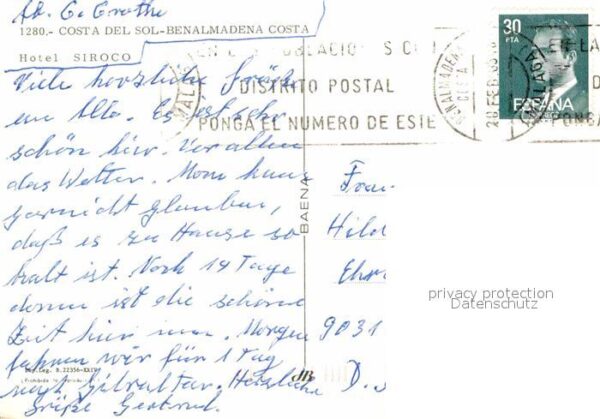 Ab. G. Grothe
1280.- COSTA DEL SOL-BENALMADENA COSTA
Hotel SIROCO
Viele herzliche Grüße
an Alle. Es ist sehr
schön hier. Vor allem
das Wetter. Man kann
garnicht glauben,
daß es zu Hause so
kalt ist. Noch 14 Tage
dann ist die schöne
Zeit hier um. Morgen
fahren wir für 1 Tag
nach Gibraltar. Herzliche
Grüße Gertrud.
BAENA
DISTRITO POSTAL
PONGA EL NUMERO DE ESTE
BENALMADENA
MALAGA
30
PTA
ESPAÑA
EN LA
D
PONGA
Frau
Hild
Ehr
9031
D.
privacy protection
Datenschutz
Dep. Leg. B. 22356-XXIV